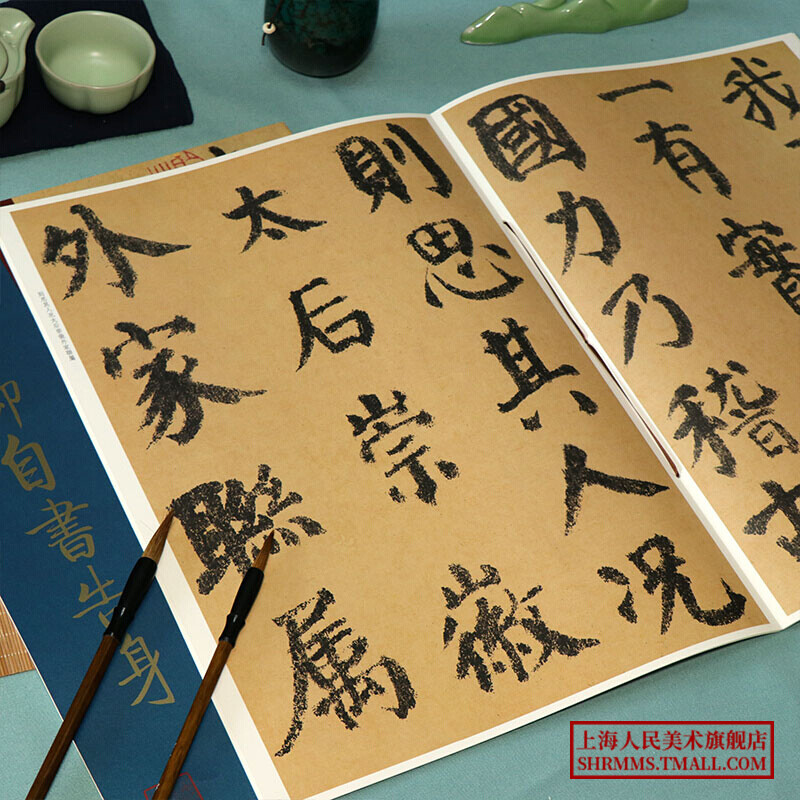 我
一有
國力乃稽古
則思其人况
太后崇徽
外家聯属
自書告身
上海人民美术旗舰店
SHRMMS.TMALL.COM